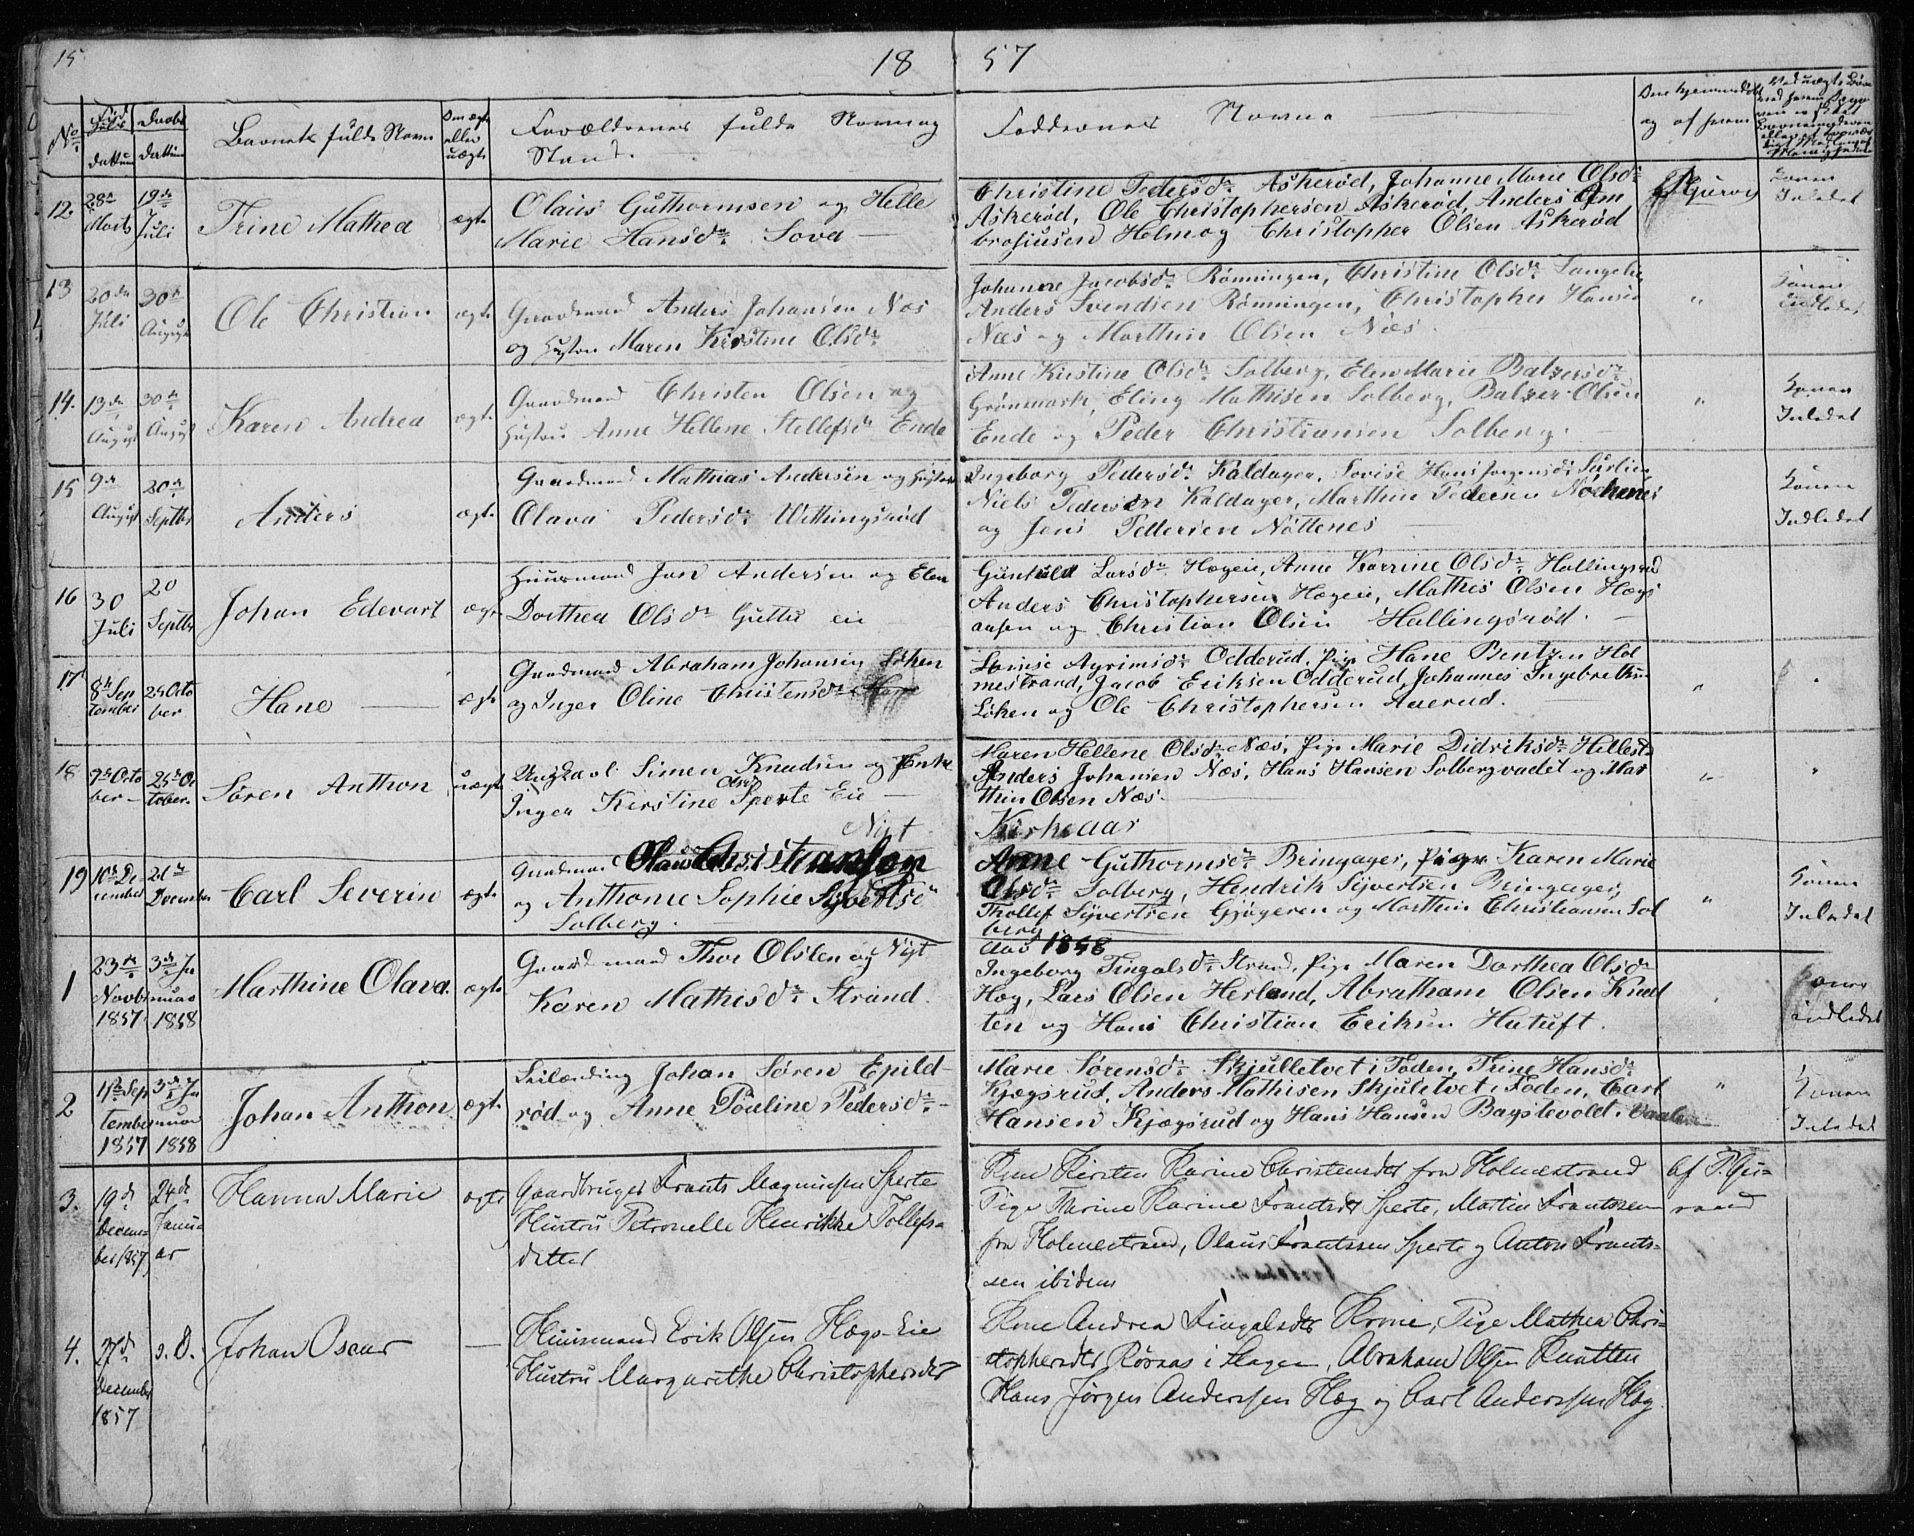 15
18 57
No
Født
dattum
Daabs
Dattum
Barnets fulde Navn
Om ægte
eller
uægte
Forældrenes fulde Navn og
Stand.
Faddernes Navne
og af hvem
12
28de
Marts
19de
Juli
Trine Mathea
ægte
Olaus Guthormsen og Helle
Marie Hansdr. Sova
Christine Pedersdr. Askerød, Johanne Marie Olsdr.
Askerød, Ole Christophersen Askerød, Anders Am
brosiusen Holm og Christopher Olsen Askerød
Konen
Inledet
13
20de
Juli
30te
August
Ole Christian
ægte
Gaardmand Anders Johansen Næs
og Hustru Maren Kirstine Olsdr.
Johanne Jacobsdr. Rønningen, Christine Olsdr.
Anders Svendsen Rønningen, Christopher Hansen
Næs og Marthin Olsen Næs.
"
Konen
Indledet
14.
13de
August
30te
August
Karen Andrea
ægte
Gaardmand Christen Olsen og
Hustru Anne Hellene Stellefsdr Ende
Anne Kirstine Olsdr. Solberg, Elen Marie Balzersdr.
Grønmark, Eling Mathisen Solberg, Balzer Olsen
Ende og Peder Christiansen Solberg.
"
Konen
Inledet
15
9de
August
20de
Septbr
Anders
ægte
Gaardmand Mathias Andersen og Hustru
Olava Pedersdr. Wettingsrød
Ingeborg Pedersdr. Kaldager, Lovise Hans Jørgensdr.
Niels Pedersen Kaldager, Marthin Pedersen
og Jens Pettersen Nøttenes
Konen
Indledet
16
30
Juli
20
Septbr
Johan Edevart
ægte
Huusmand Jon Andersen og Elen
Dorthea Olsdr. Guttu eie
Gunhild Larsdr. Høgeie, Anne Karrine Olsdr. Hallingsrød
Anders Christophersen Høgeie, Mathis Olsen Høgs
aasen og Christian Olsen Hallingsrød.
17
8de Sep
tember
25 Octo
ber
Hane
ægte
Gaardmand Abraham Johansen Løken
og Inger Oline Christensdr.
Lovise Agrimsdr. Odderud, Pige Hane Bentzen Hol
mestrand, Jacob Eriksen Odderud, Johannes Ingebretsen
Løken og Ole Christophersen Aaerud.
"
"
18
7de Octo
ber
25de Oc
tober.
Søren Anthon
uægte
Ungkarl Simen Knudsen og Enke
Inger Kirstine Olsdr Sperte Eie
Maren Hellene Olsdr. Næs, Pige Marie Didriksdr. Hillestad
Anders Johansen Næs, Hans Hansen Solbergvadet og Mar
thin Olsen Næs.
"
"
Nyt
Kirkeaar
19
10de De
cember
26de
December
Carl Severin
ægte
Gaardmand Olaus Christiansen
og Anthone Sophie Syvertsd
Solberg.
Anne Guthormsdr. Bringager, Pige Karen Marie
Olsdr. Solberg, Hendrik Syvertsen Bringager,
Thollef Syvertsen Gjøgeren og Marthin Christiansen Sol
berg
"
Konen
Inledet
Aar 1858
1
23de
Novbr
1857
3de Ja
nuar
1858
Marthine Olava.
ægte
Gaardmand Thor Olsten og Nyt
Karen Mathisdr. Strand.
Ingeborg Fingalsdr. Strand, Pige Maren Dorthea Olsdr
Høg, Lars Olsen Herland, Abratham Olsen Knat
ten og Hans Christian Eriksen Hutuft.
Konen
indledet
2
11te Sep
tember
1857
3de Ja
nuar
1858
Johan Anthon.
ægte
Leilænding Johan Søren Epild-
rød og Anne Pouline Pedersdr.
Marie Sørensdr. Skjulletvet i Foden, Trine Hansdr.
Kjøgsrud, Anders Mathisen Skjuletvet i Foden, Carl
Hansen Kjøgsrud og Hans Hansen Bagstevold.
"
Konen
Inledet
3.
19de
Decem-
ber 1857
24de
Janu-
ar
Hanna Marie
ægte
Gaardbruger Frants Magnussen Sperte
Hustru Petronelle Henrikke Tollefs-
datter
Kone Kirsten Karine Christensdtr fra Holmestrand
Pige Thrine Karine Frantsdtr Sperte, Martin Frantssen
fra Holmestrand, Olaus Frantssen Sperte og Anton Frants-
sen ibidem
4.
27de
December
1857
s. D.
Johan Oscar
Huusmand Erik Olsen Høgs-Eie
Hustru Margarethe Christophersdtr
Kone Andrea Fingalsdtr Horne, Pige Mathea Chri-
stophersdtr Røraas i Slagen, Abraham Olsen Knatten
Hans Jørgen Anderssen Høg og Carl Anderssen Høg.